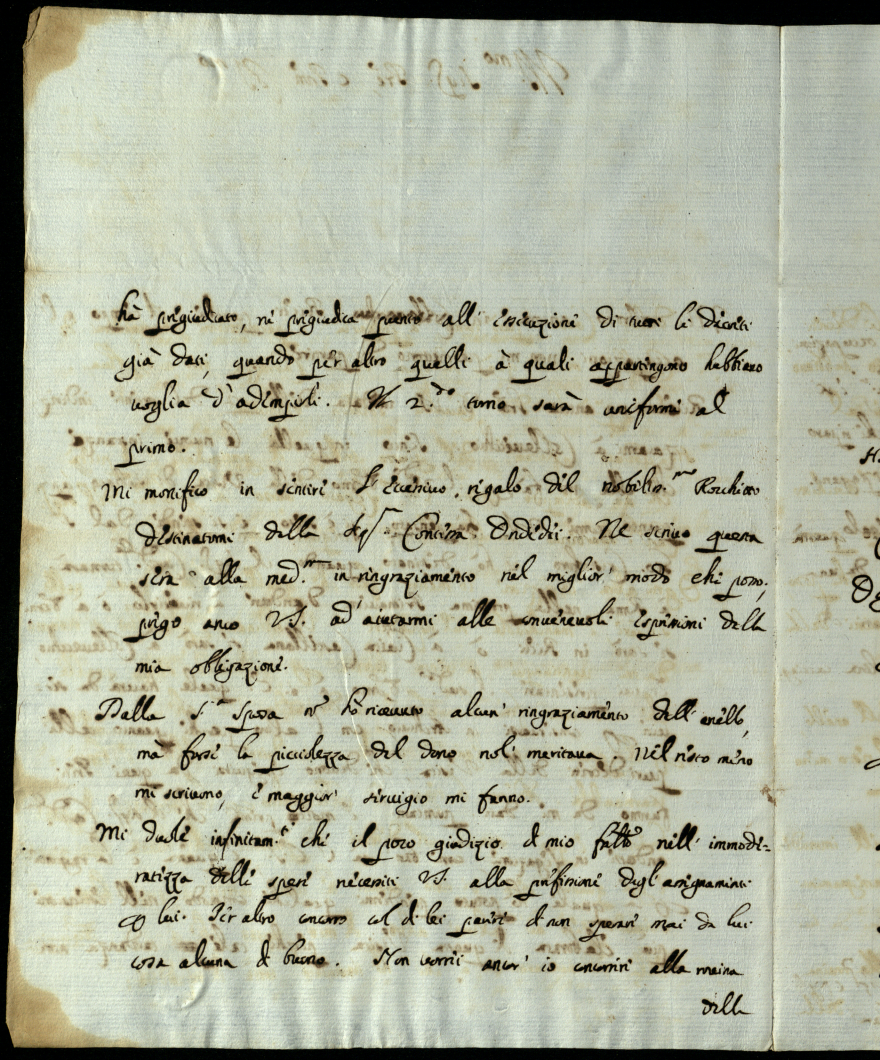 hà pregiudicato, nè pregiudica punto all' essecuzione di tutti li decreti
già dati, quando per altro quelli à quali appartengono habbiano
voglia d'adempirli. Il 2.do turno sarà uniforme al
primo.
Mi mortifico in sentire l'eccessivo regalo del nobiliss.mo Rocchetto
destinatomi dalla Sig.ra Contessa Ondedei. Ne scrivo questa
sera alla med.ma in ringraziamento nel miglior modo che posso;
prego anco V.S. ad aiutarmi alle convenevoli espressioni della
mia obligazione.
Dalla S.ra Sposa nō hò ricevuto alcun' ringraziamento dell' anello,
mà forse la picciolezza del dono nol' meritava. Nel resto meno
mi scrivono, e maggior servigio mi fanno.
Mi duole infinitam.te che il poco giudizio di mio fratello nell' immode-
ratezza delle spese necessiti V.S. alla prefissione degl' assegnamenti
lui. Per altro concorro col di lei parere di non sperar mai da lui
cosa alcuna di buono. Non vorrei ancor' io concorrere alla rovina
della